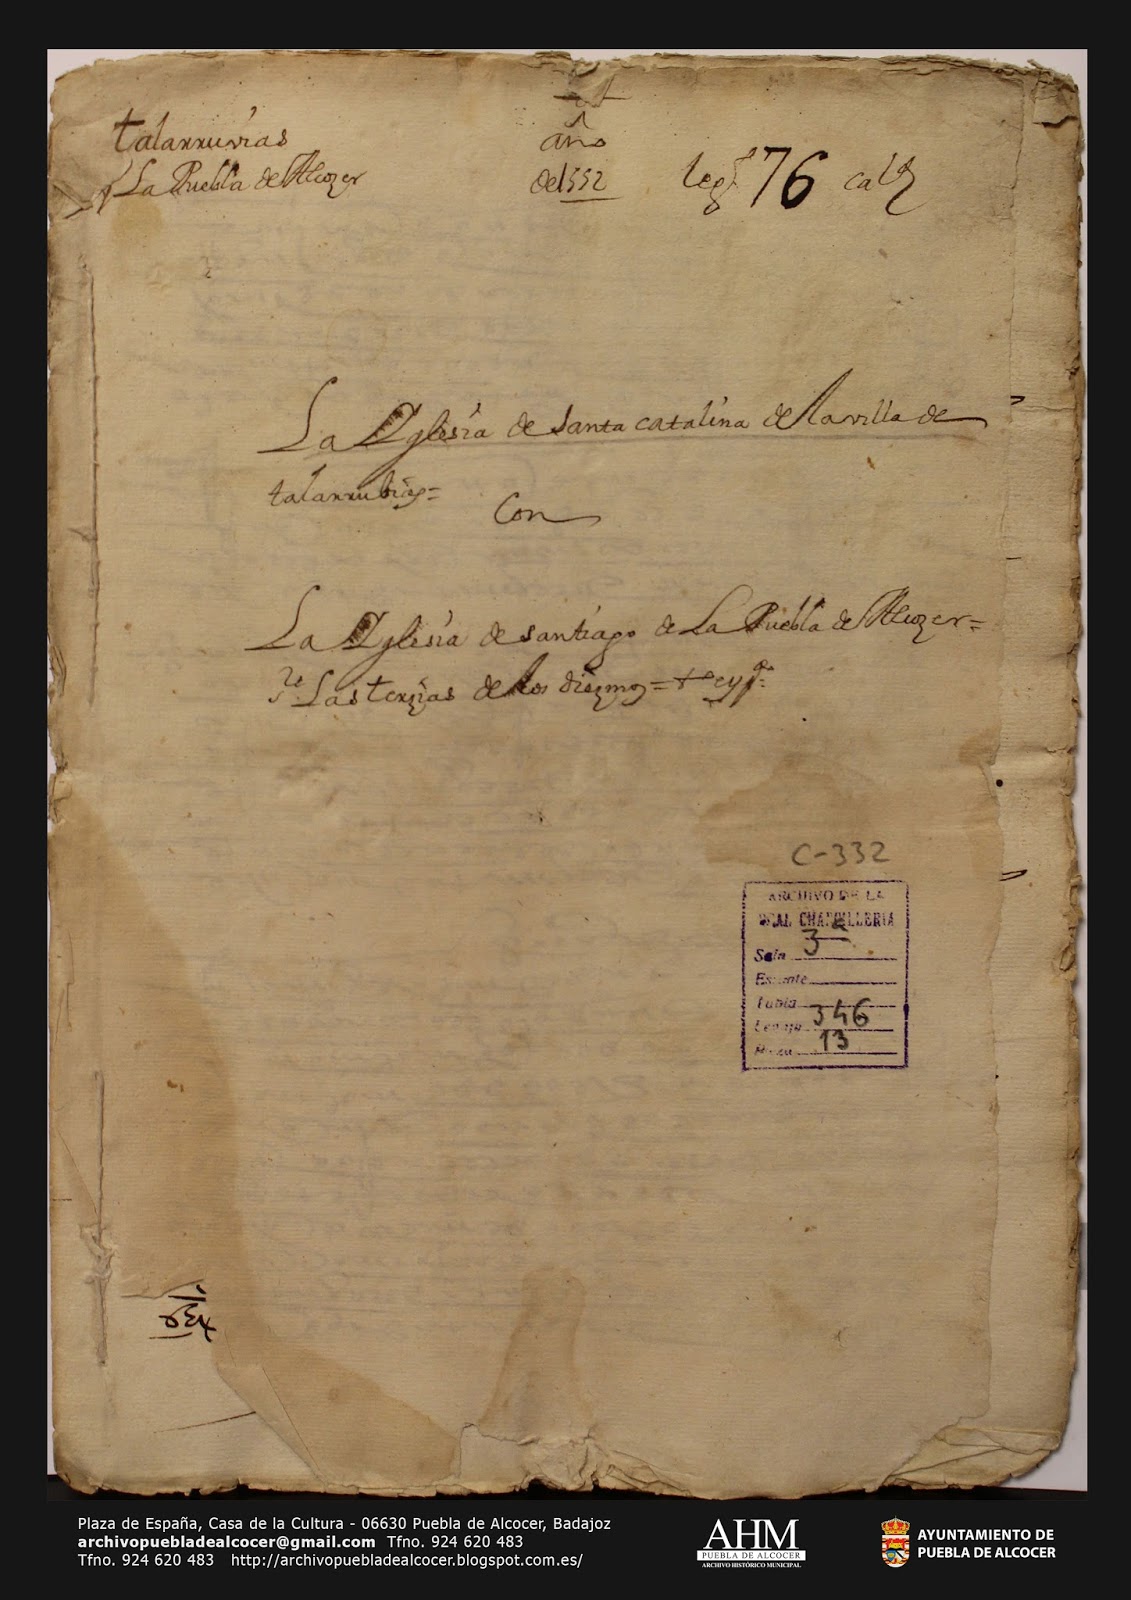 talarruvias
y La Puebla de Alcozer
año
de 1552
leg.º 76
La Yglesia de Santa catalina de la villa de
talarrubias=
Con
La Yglesia de santiago de La Puebla de Alcozer=
Las terzias de los diezmos=
C-332
ARCHIVO DE LA
REAL CHANCILLERIA
Sala 3ª
Estante
Tabla
Legajo 346
Pieza 13
Plaza de España, Casa de la Cultura - 06630 Puebla de Alcocer, Badajoz
archivopuebladealcocer@gmail.com Tfno. 924 620 483
Tfno. 924 620 483 http://archivopuebladealcocer.blogspot.com.es/
AHM
PUEBLA DE ALCOCER
ARCHIVO HISTÓRICO MUNICIPAL
AYUNTAMIENTO DE
PUEBLA DE ALCOCER